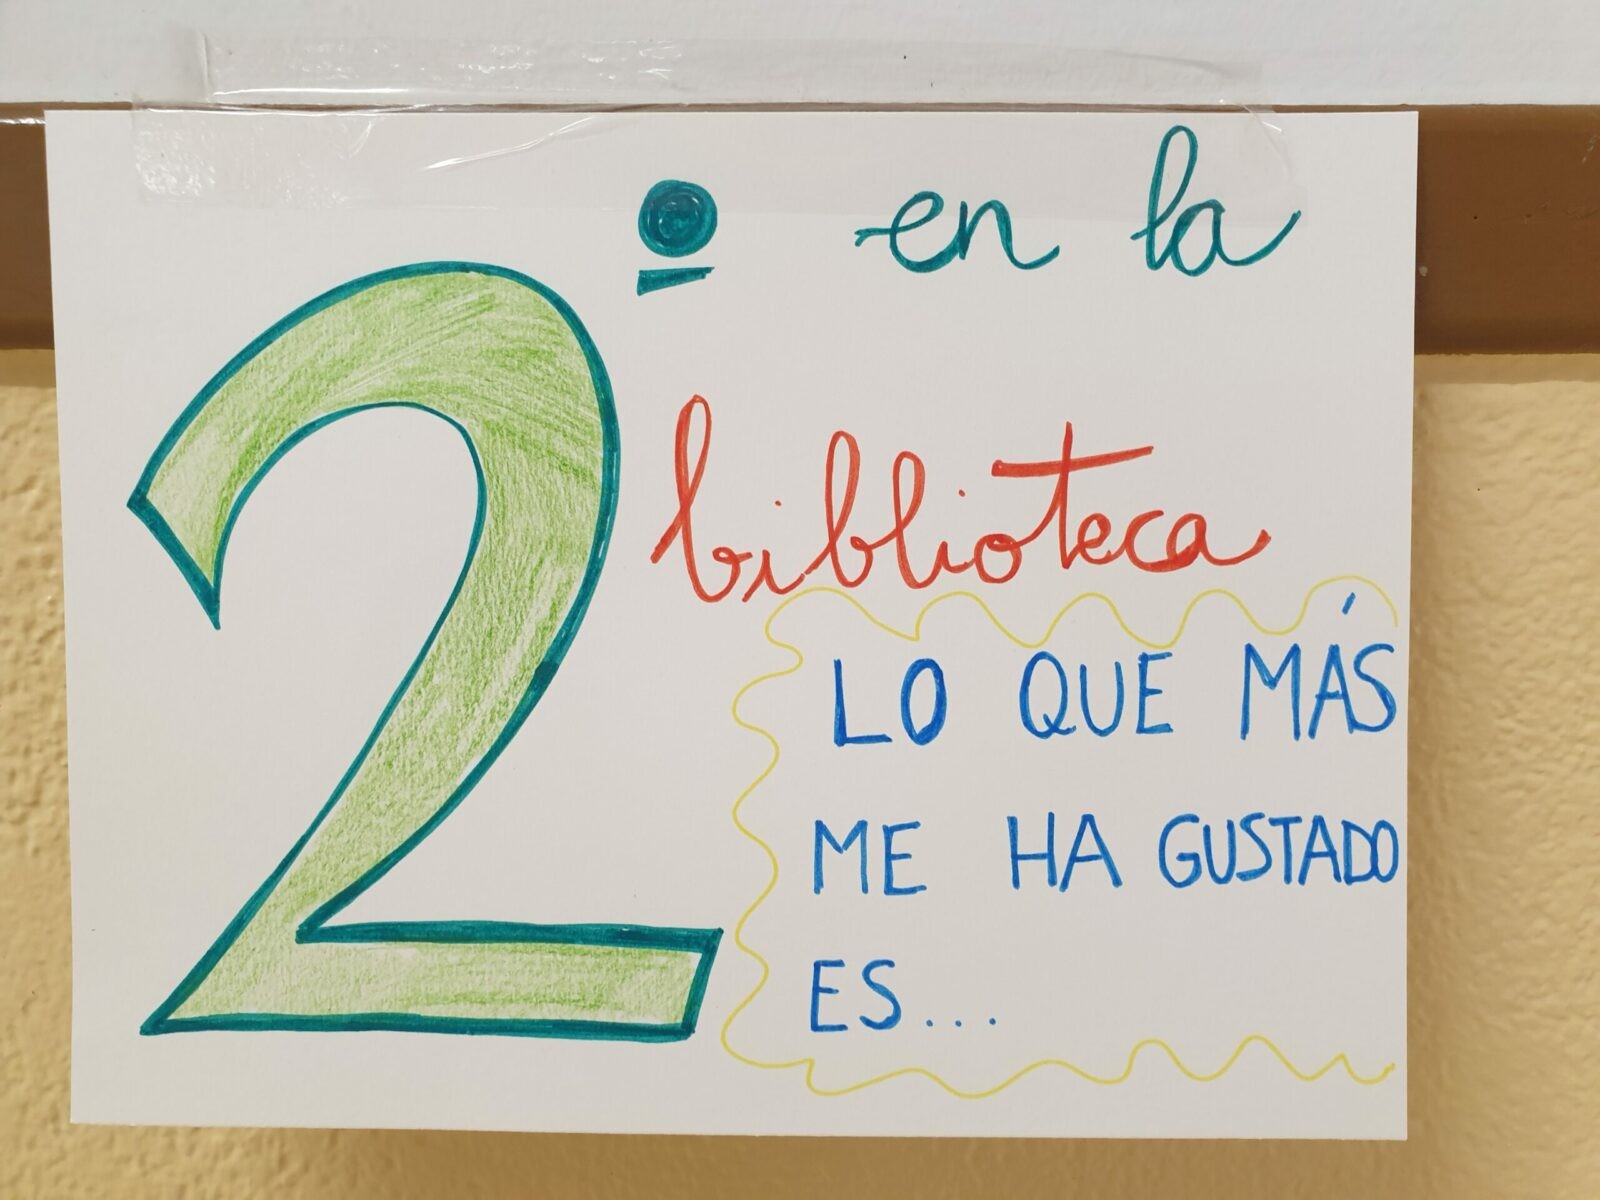 2º en la
biblioteca
LO QUE MÁS
ME HA GUSTADO
ES...